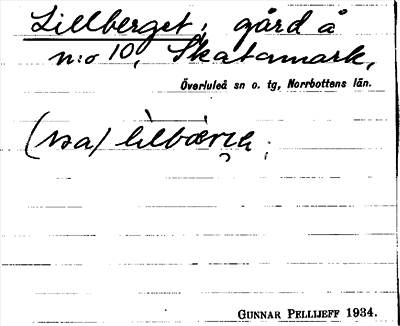 Lillberget, gård å
n:o 10, Skatamark,
Överluleå sn o. tg, Norrbottens län.
GUNNAR PELLIJEFF 1934.